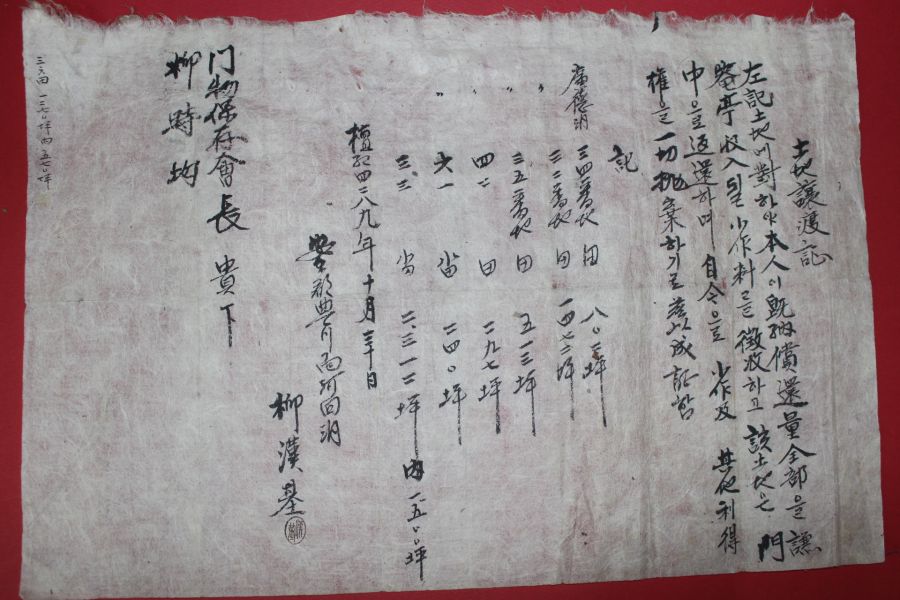 土地讓渡証
左記土地에對하야本人이旣納償還量全部을 謙
菴亭收入될小作料를徵收하고該土地은 門
中으로返還하며 自今으로 小作及 其他利得
權을一切抛棄하기로 玆以成証함
記
廣德洞 三四番地 田 八〇二坪
〃 三二番地 田 一四七二坪
〃 三五二番地 田 五一三坪
〃 四二 田 二九七坪
〃 六一 畓 二四〇坪
三三 畓 二、三一二坪 內 一五〇〇坪
檀紀四二八九年十月三十日
安東郡豊川面河回洞
柳漢基
門物保存會長 貴下
柳時均